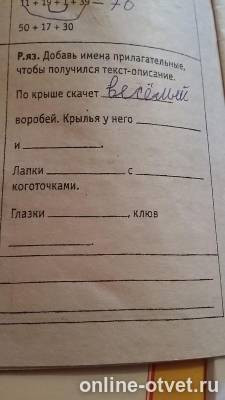 11 + 19 + 1 + 39 – 70
50 + 17 + 30
Р.яз. Добавь имена прилагательные,
чтобы получился текст-описание.
По крыше скачет весёлый
воробей. Крылья у него ________
и ________.
Лапки ________ с ________
коготочками.
Глазки ________, клюв
________.
online-otvet.ru